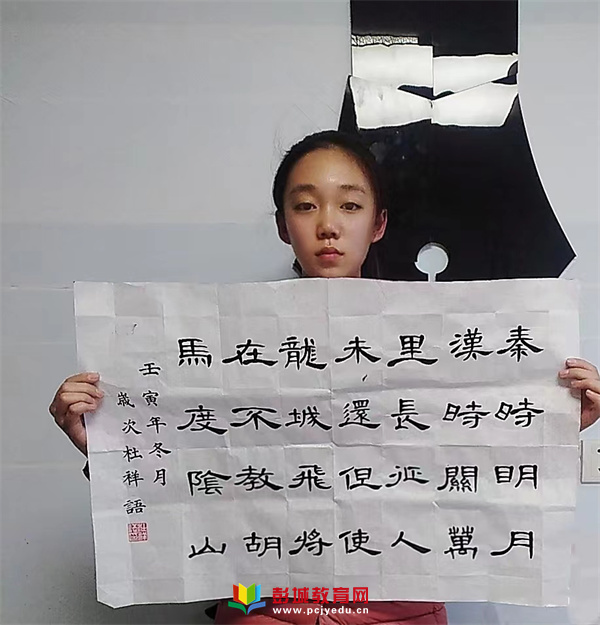 秦時明月
漢時關萬
里長征人
未還但使
龍城飛將
在不教胡
馬度陰山
壬寅年冬月
歲次杜祥語
彭城教育网
www.pcjyedu.cn